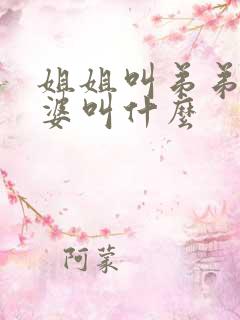 姐姐叫弟弟
婆叫什麼
阿蒙